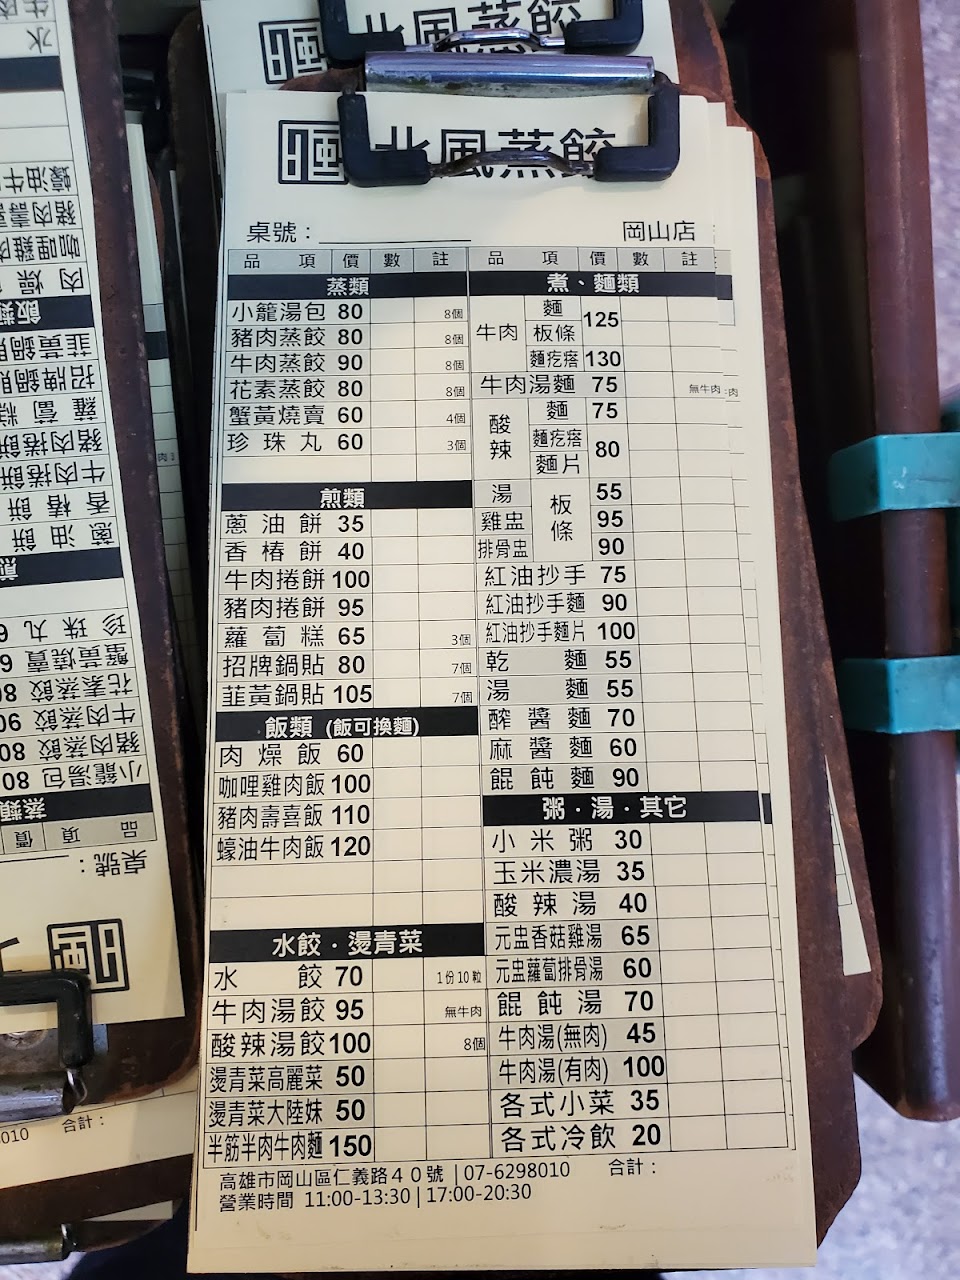 北風蒸餃
北風蒸餃
桌號： 岡山店
品項 價 數 註
蒸類
小籠湯包 80 8個
豬肉蒸餃 80 8個
牛肉蒸餃 90 8個
花素蒸餃 80 8個
蟹黃燒賣 60 4個
珍珠丸 60 3個
煎類
蔥油餅 35
香椿餅 40
牛肉捲餅 100
豬肉捲餅 95
蘿蔔糕 65 3個
招牌鍋貼 80 7個
韮黃鍋貼 105 7個
飯類 (飯可換麵)
肉燥飯 60
咖哩雞肉飯 100
豬肉壽喜飯 110
蠔油牛肉飯 120
水餃．燙青菜
水餃 70 1份10粒
牛肉湯餃 95 無牛肉
酸辣湯餃 100 8個
燙青菜高麗菜 50
燙青菜大陸妹 50
半筋半肉牛肉麵 150
品項 價 數 註
煮、麵類
牛肉 麵 板條 125
麵疙瘩 130
牛肉湯麵 75 無牛肉
酸辣 麵 75
麵疙瘩 麵片 80
湯 板條 55
雞盅 95
排骨盅 90
紅油抄手 75
紅油抄手麵 90
紅油抄手麵片 100
乾麵 55
湯麵 55
醡醬麵 70
麻醬麵 60
餛飩麵 90
粥．湯．其它
小米粥 30
玉米濃湯 35
酸辣湯 40
元盅香菇雞湯 65
元盅蘿蔔排骨湯 60
餛飩湯 70
牛肉湯(無肉) 45
牛肉湯(有肉) 100
各式小菜 35
各式冷飲 20
高雄市岡山區仁義路４０號 | 07-6298010 合計：
營業時間 11:00-13:30 | 17:00-20:30
桌號：
品項 價
蒸類
小籠湯包 80
豬肉蒸餃 80
牛肉蒸餃 90
花素蒸餃 80
蟹黃燒賣 6
珍珠丸 6
煎
蔥油餅
香椿餅
牛肉捲餅
豬肉捲餅
蘿蔔糕
招牌鍋貼
韮黃鍋貼
飯類
肉燥
咖哩雞肉
豬肉壽
蠔油牛
水
牛肉
010 合計：